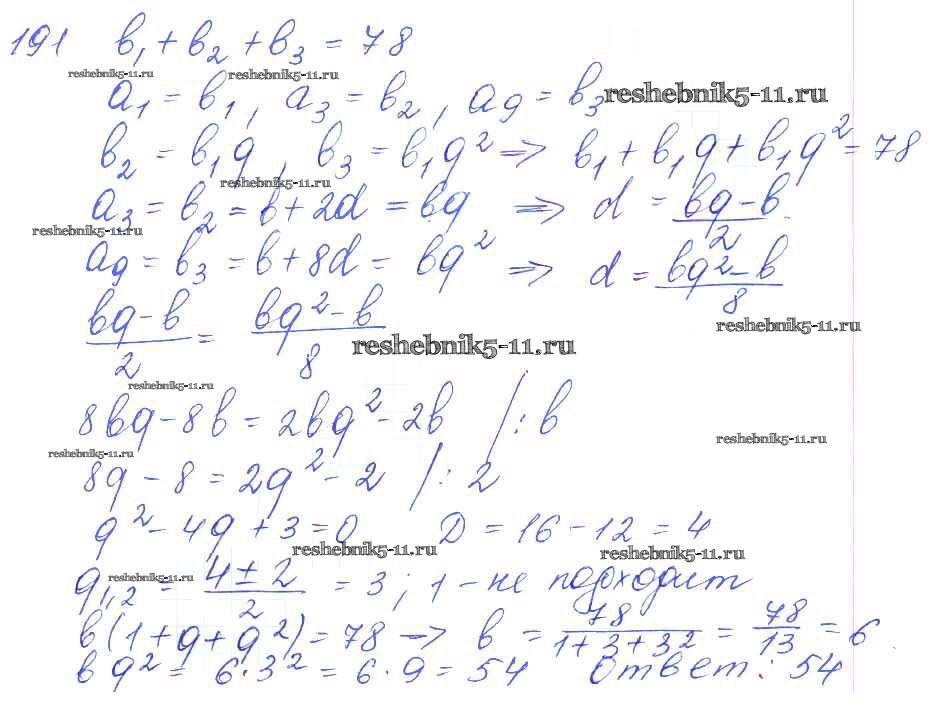 191 b₁ + b₂ + b₃ = 78
reshebnik5-11.ru reshebnik5-11.ru
a₁ = b₁, a₃ = b₂, a₉ = b₃ reshebnik5-11.ru
b₂ = b₁q, b₃ = b₁q² ⇒ b₁ + b₁q + b₁q² = 78
reshebnik5-11.ru
a₃ = b₂ = b + 2d = bq ⇒ d = (bq - b)/2
reshebnik5-11.ru
a₉ = b₃ = b + 8d = bq² ⇒ d = (bq² - b)/8
reshebnik5-11.ru
(bq - b)/2 = (bq² - b)/8 reshebnik5-11.ru
reshebnik5-11.ru
8bq - 8b = 2bq² - 2b /: b
reshebnik5-11.ru
reshebnik5-11.ru
8q - 8 = 2q² - 2 /: 2
q² - 4q + 3 = 0 D = 16 - 12 = 4
reshebnik5-11.ru reshebnik5-11.ru
reshebnik5-11.ru
q₁,₂ = (4 ± 2)/2 = 3; 1 - не подходит
b(1 + q + q²) = 78 → b = 78/(1 + 3 + 3²) = 78/13 = 6
bq² = 6·3² = 6·9 = 54 Ответ: 54